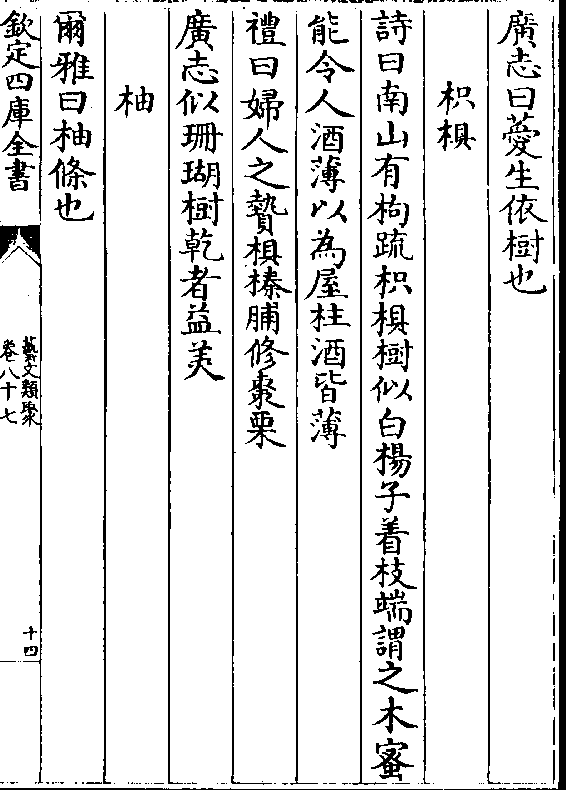 廣志曰薆生依樹也
枳椇
詩曰南山有枸疏枳椇樹似白楊子着枝端謂之木蜜
能令人酒薄以為屋柱酒皆薄
禮曰婦人之贄椇榛脯修棗栗
廣志似珊瑚樹乾者益美
柚
爾雅曰柚條也
欽定四庫全書
藝文類聚
卷八十七
十四